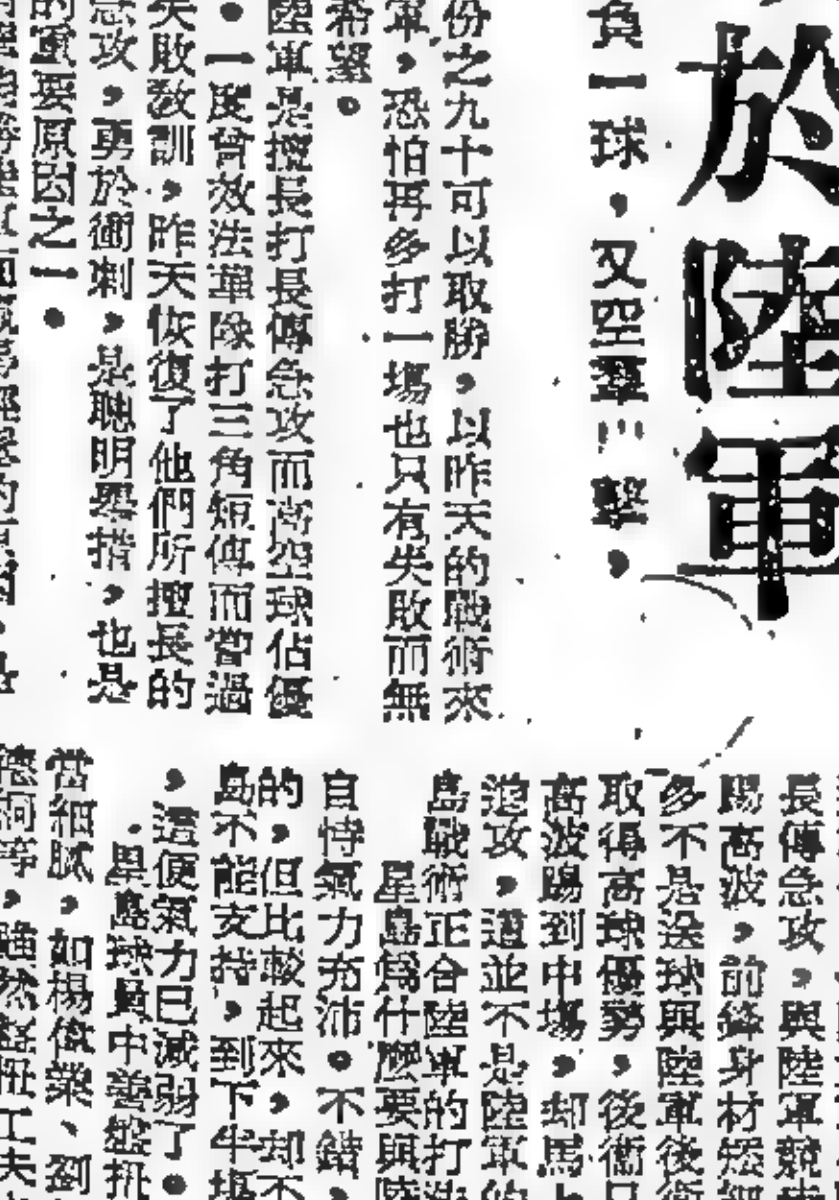 於陸軍
負一球，又空羣擊，
份之九十可以取勝，以昨天的戰術來
軍，恐怕再多打一塲也只有失敗而無
希望。
陸軍是擅長打長傳急攻而高空球佔優
。一度曾效法華隊打三角短傳而嘗過
失敗敎訓，昨天恢復了他們所擅長的
急攻，勇於衝刺，是聰明舉措，也是
的重要原因之一。
長傳急攻，與陸軍競
陽高波，前鋒身材矮
多不是送球與陸軍後衛
取得高球優勢，後衞只
高波陽到中塲，却馬上
進攻，這並不是陸軍的
島戰術正合陸軍的打法
星島爲什麽要與陸
自恃氣力充沛。不錯，
的，但比較起來，却不
島不能支持，到下半塲
，這便氣力已減弱了。
星島球員中善盤扭
當細膩，如楊偉業、劉
德等，雖然盤扭工夫